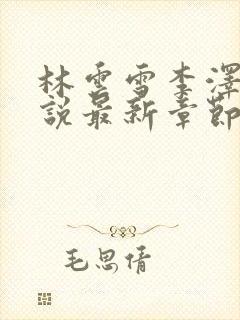 林雲雪李澤
說最新章節
毛思倩